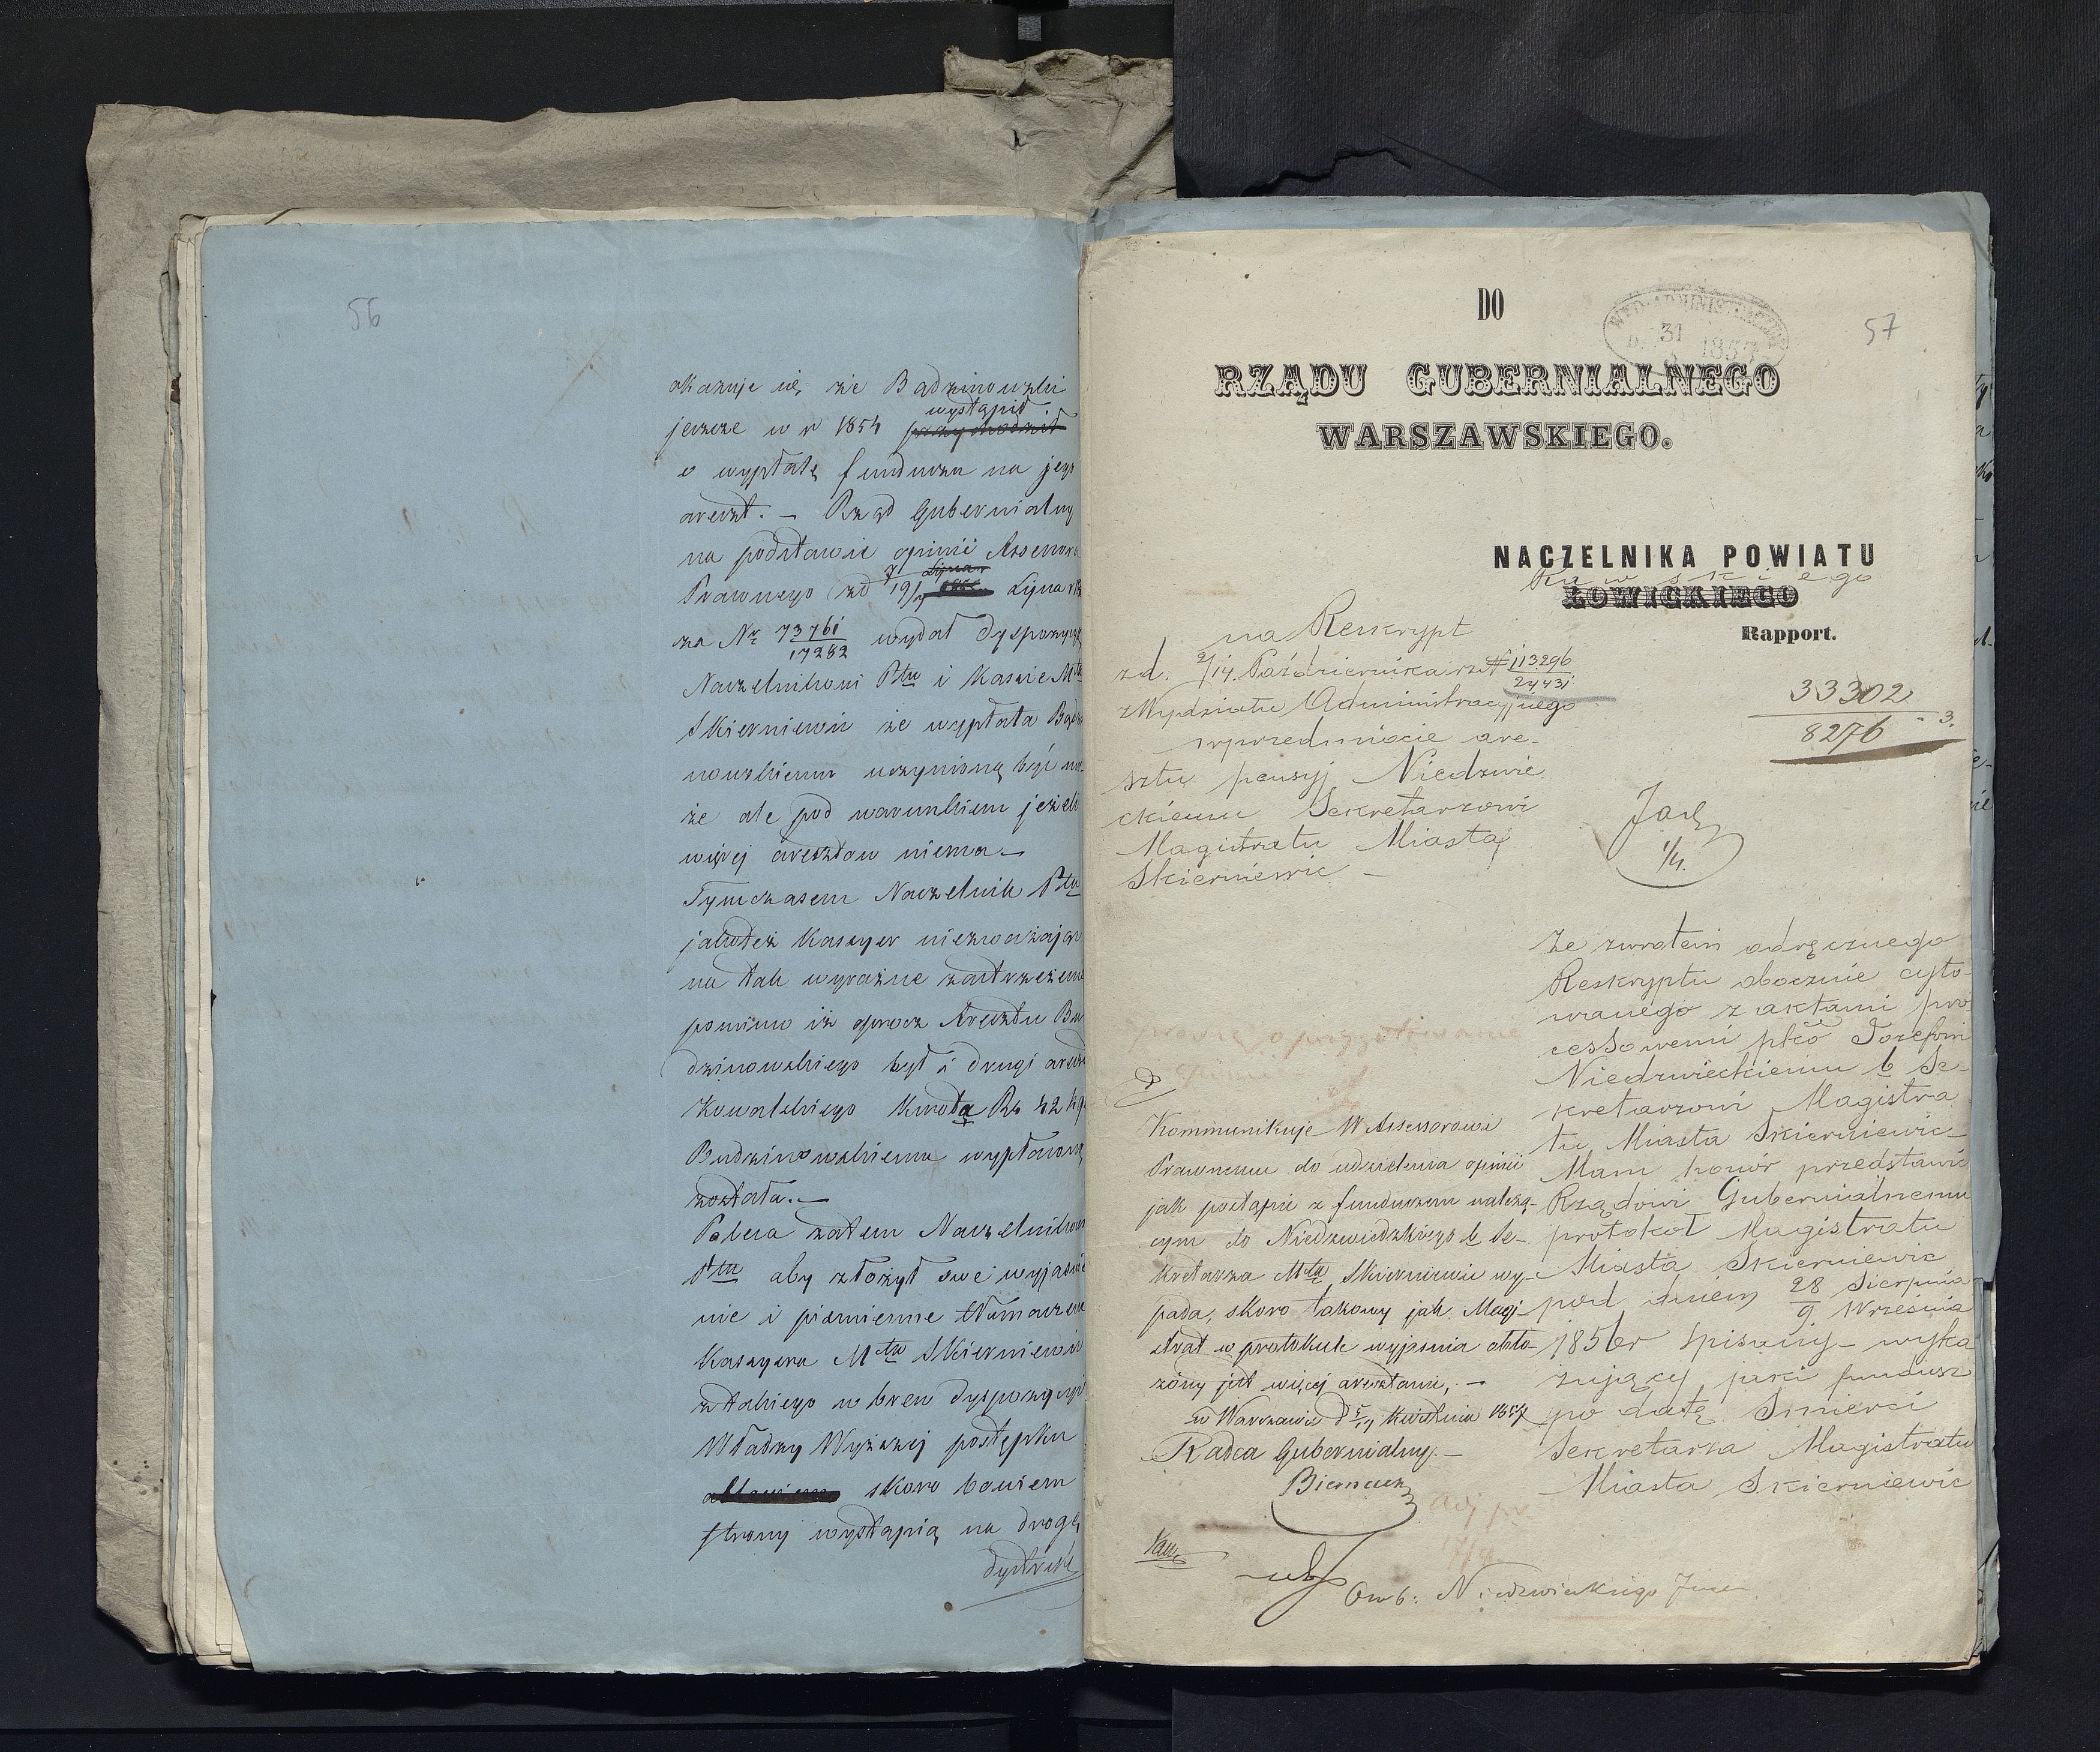 56
okazuje się że Bądzinowski
jeszcze w r 1854 wystąpił
o wypłatę funduszu na jego
areszt. – Rząd Gubernialny
na podstawie opinii Assessora
Prawnego zd 7/19 Lipca
za Nr 73761/17282 wydał dyspozycyę
Naczelnikowi Ptu i Kassie Mta
Skierniewic że wypłata Bądzi
nowskiemu uczynioną być mo-
że ale pod warunkiem jeżeli
więcej aresztów niema. –
Tymczasem Naczelnik Ptu
jakoteż Kassyer niezważając
na tak wyraźne zastrzeżenie
pomimo iż oprócz Aresztu Bu
dzinowskiego był i drugi areszt
Kowalskiego kwota Rs 42
Budzinowskiemu wypłaconą
została. –
Poleca zatem Naczelnikowi
Ptu aby złożył swe wyjaśnie
nie i piśmienne tłumaczenie
Kassyera Mta Skierniewic
z takiego w brew dyspozycyi
Władzy Wyższej postępku
skoro bowiem
strony wystąpią na drogę
57
DO
RZĄDU GUBERNIALNEGO
WARSZAWSKIEGO.
NACZELNIKA POWIATU
Rawskiego
ŁOWICKIEGO
Rapport.
na Reskrypt
zd. 2/14 Października r z N 113296/24431
z Wydziału Administracyjnego
w przedmiocie are-
sztu pensyj Niedzwie
ckiemu Sekretarzowi
Magistratu Miasta
Skierniewic –
33302
8276 - 3.
1/4.
Ze zwrotem odręcznego
Reskryptu obocznie cyto-
wanego z aktami pro
cessowemi płco Józefowi
Niedzwieckiemu b Se-
kretarzowi Magistra
tu Miasta Skierniewic –
Mam honór przedstawić
Rządowi Gubernialnemu
protokół Magistratu
Miasta Skierniewic
pod dniem 28 Sierpnia/9 Września
1856r spisany – wyka
zujący jaki fundusz
po datę śmierci
Sekretarza Magistratu
Miasta Skierniewic
Kommunikuje W Assessorowi
Prawnemu do udzielenia opinii
jak postąpić z funduszem należą-
cym do Niedzwiedzkiego b Se-
kretarza Mta Skierniewic wy-
pada, skoro takowy jak Magi-
strat w protokule wyjaśnia obło-
żony jest więcej aresztami, –
w Warszawie d 5/17 Kwietnia 1857
Radca Gubernialny. –
Biernacki
Niedzwieckiego